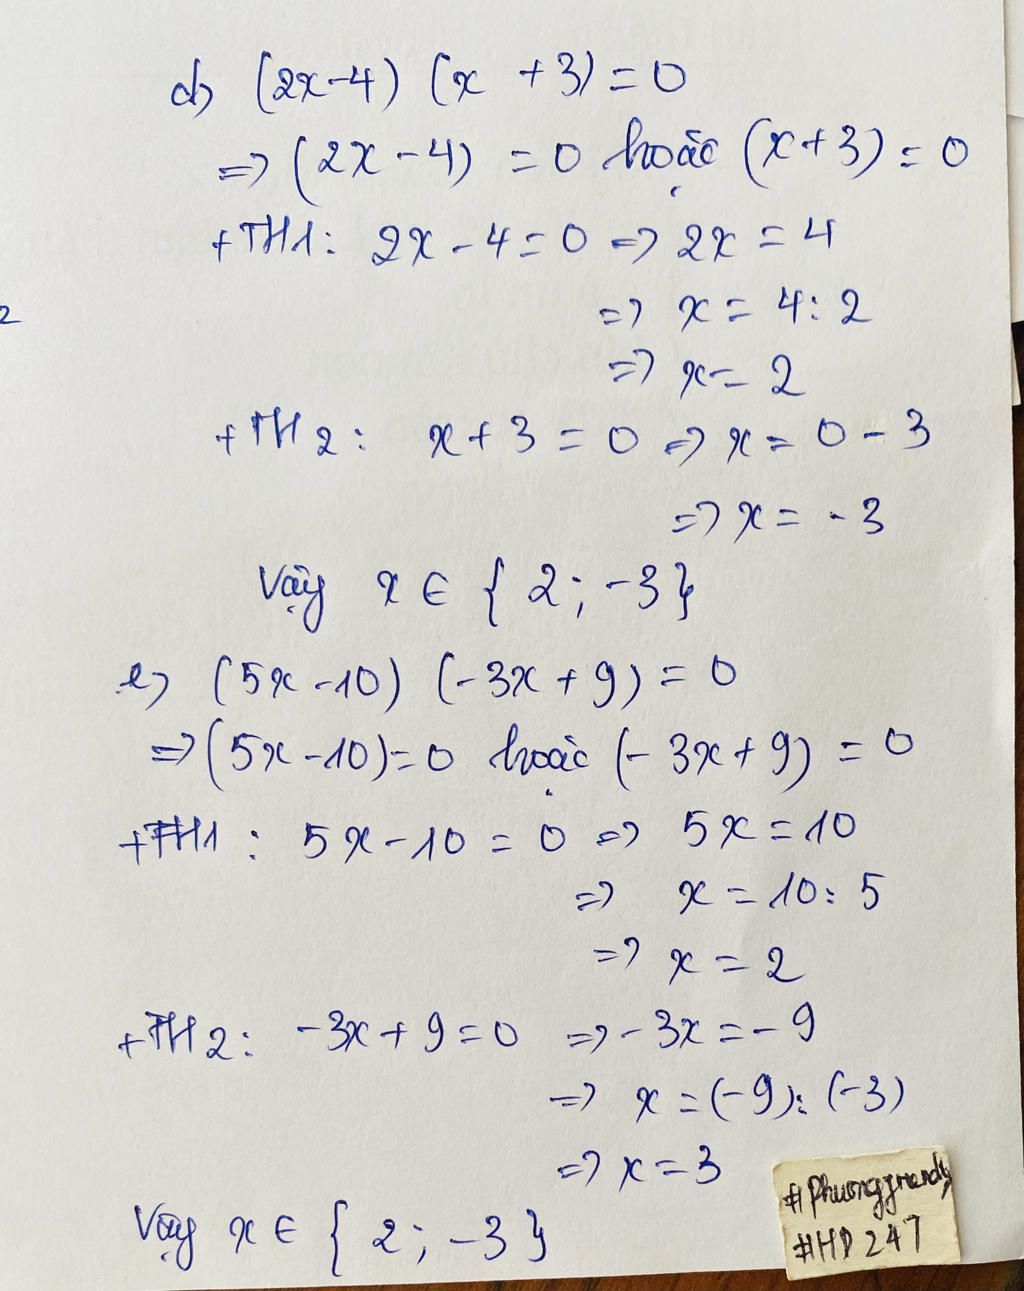 d) (2x-4) (x +3) = 0
=> (2x - 4) = 0 hoặc (x+3) = 0
+ TH1: 2x - 4 = 0 => 2x = 4
=> x = 4 : 2
2
=> x = 2
+ TH2: x + 3 = 0 => x = 0 - 3
=> x = -3
Vậy x ∈ { 2; -3}
e) (5x -10) (-3x + 9) = 0
=> (5x -10) = 0 hoặc (- 3x + 9) = 0
+ TH1 : 5x - 10 = 0 => 5x = 10
=> x = 10 : 5
=> x = 2
+ TH2: -3x + 9 = 0 => -3x = -9
=> x = (-9) : (-3)
=> x = 3
Vậy x ∈ { 2; -3}
#HD247